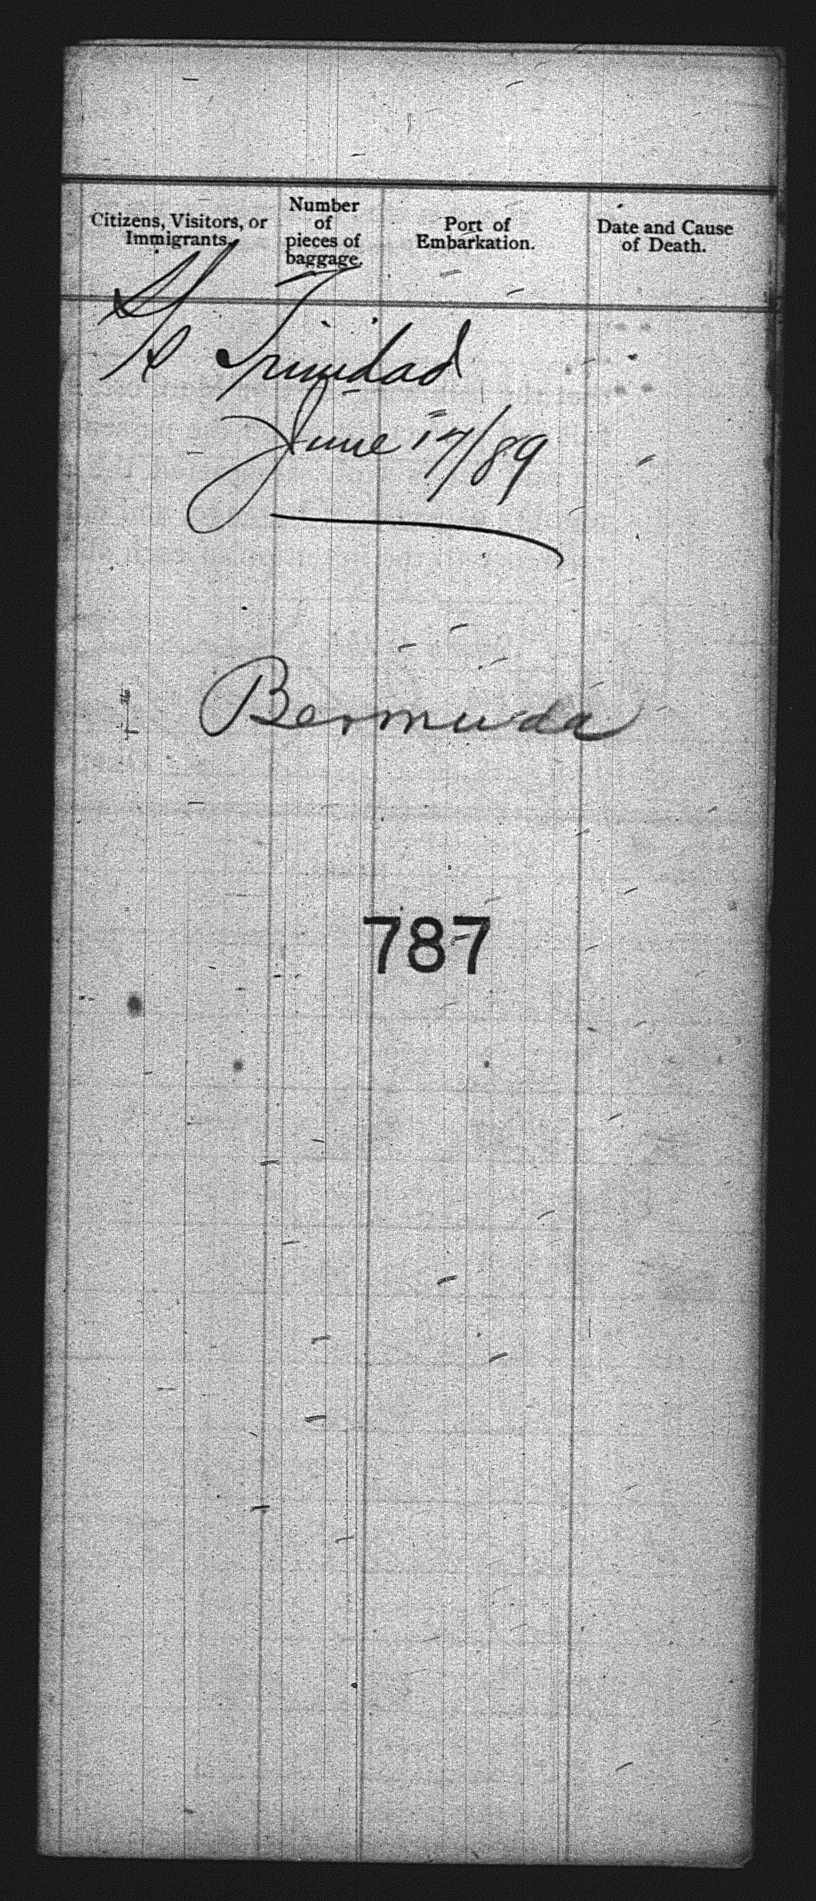 Citizens, Visitors, or Immigrants.
Number of pieces of baggage.
Port of Embarkation.
Date and Cause of Death.
SS Trinidad
June 17/89
Bermuda
787